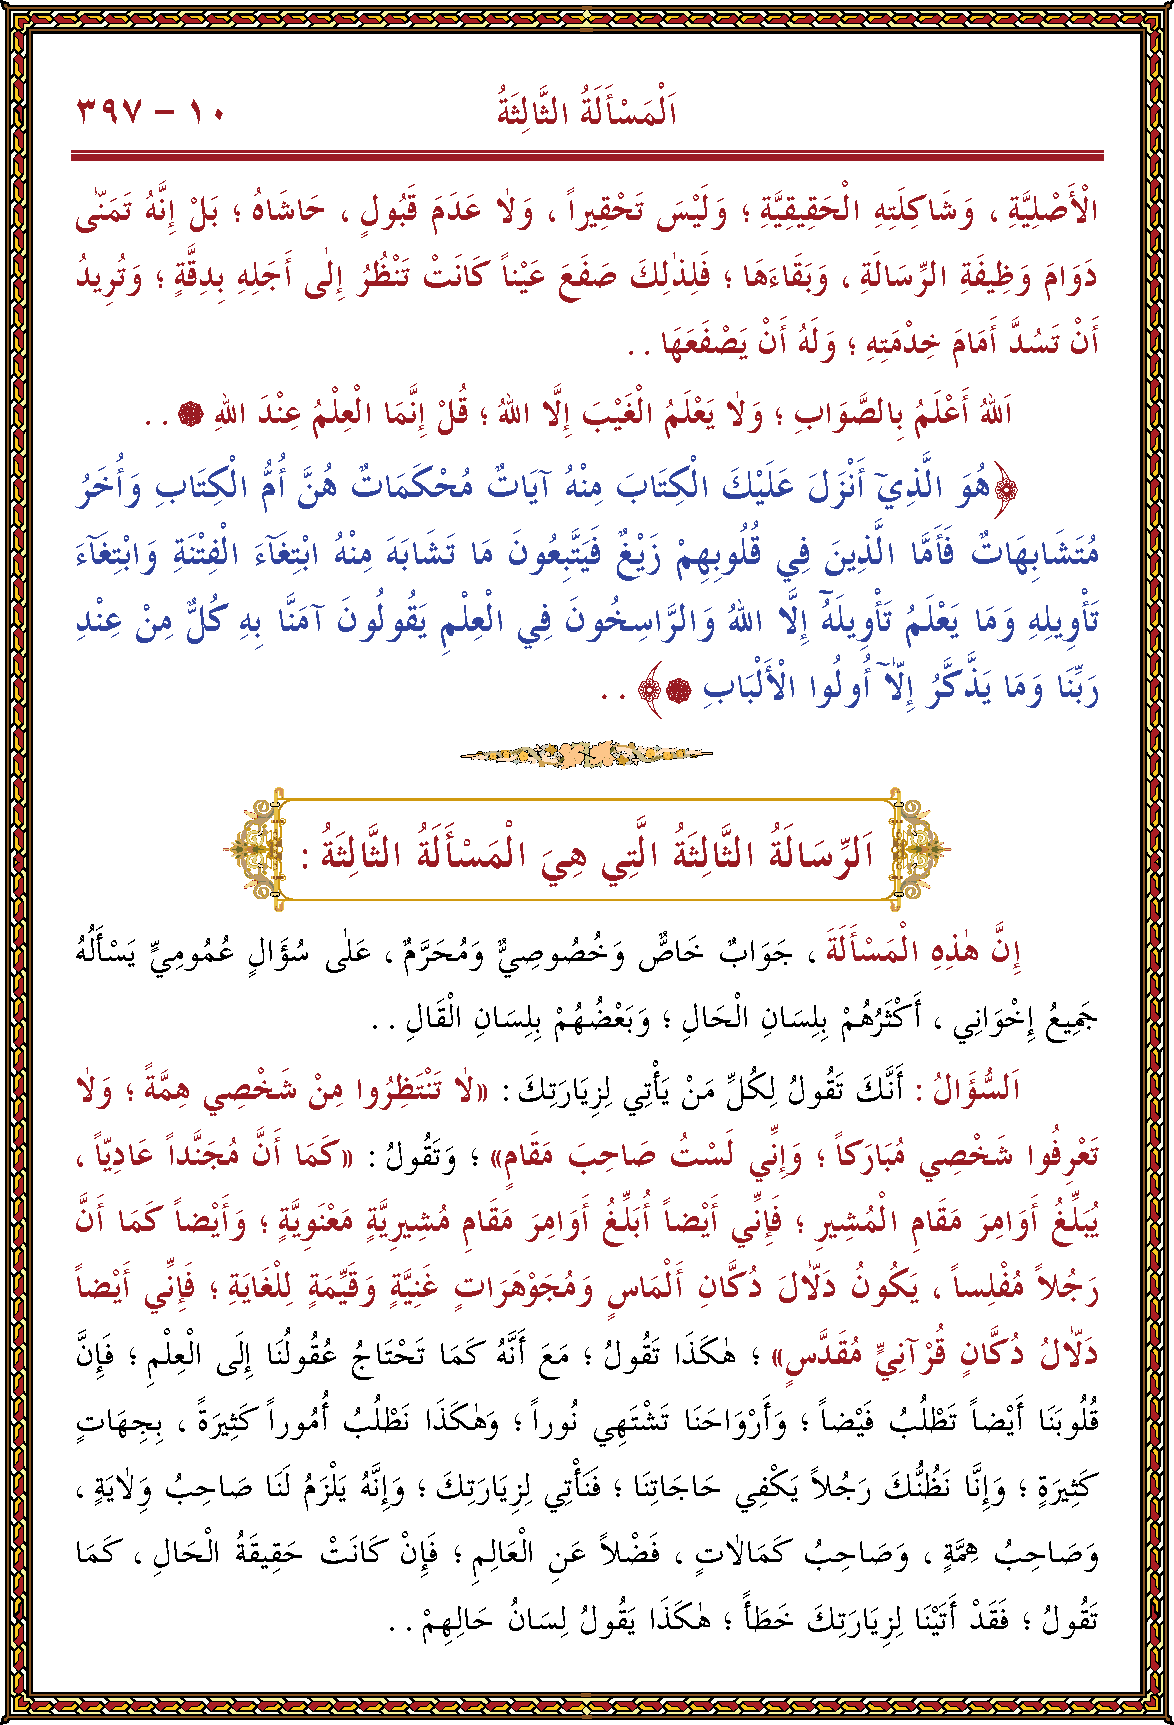 اَلْمَسْأَلَةُ الثَّالِثَةُ
١٠ - ٣٩٧
الْأَصْلِيَّةِ ، وَشَاكِلَتِهِ الْحَقِيقِيَّةِ ؛ وَلَيْسَ تَحْقِيراً ، وَلَا عَدَمَ قَبُولٍ ، حَاشَاهُ ؛ بَلْ إِنَّهُ تَمَنَّى
دَوَامَ وَظِيفَةِ الرِّسَالَةِ ، وَبَقَاءَهَا ؛ فَلِذٰلِكَ صَفَعَ عَيْناً كَانَتْ تَنْظُرُ إِلَى أَجَلِهِ بِدِقَّةٍ ؛ وَتُرِيدُ
أَنْ تَسُدَّ أَمَامَ خِدْمَتِهِ ؛ وَلَهُ أَنْ يَصْفَعَهَا . .
اَللهُ أَعْلَمُ بِالصَّوَابِ ؛ وَلَا يَعْلَمُ الْغَيْبَ إِلَّا اللهُ ؛ قُلْ إِنَّمَا الْعِلْمُ عِنْدَ اللهِ . .
﴿هُوَ الَّذِيٓ أَنْزَلَ عَلَيْكَ الْكِتَابَ مِنْهُ آيَاتٌ مُحْكَمَاتٌ هُنَّ أُمُّ الْكِتَابِ وَأُخَرُ
مُتَشَابِهَاتٌ فَأَمَّا الَّذِينَ فِي قُلُوبِهِمْ زَيْغٌ فَيَتَّبِعُونَ مَا تَشَابَهَ مِنْهُ ابْتِغَآءَ الْفِتْنَةِ وَابْتِغَآءَ
تَأْوِيلِهِ وَمَا يَعْلَمُ تَأْوِيلَهُٓ إِلَّا اللهُ وَالرَّاسِخُونَ فِي الْعِلْمِ يَقُولُونَ آمَنَّا بِهِ كُلٌّ مِنْ عِنْدِ
رَبِّنَا وَمَا يَذَّكَّرُ إِلَّآ أُولُوا الْأَلْبَابِ ﴾ . .
اَلرِّسَالَةُ الثَّالِثَةُ الَّتِي هِيَ الْمَسْأَلَةُ الثَّالِثَةُ :
إِنَّ هٰذِهِ الْمَسْأَلَةَ ، جَوَابٌ خَاصٌّ وَخُصُوصِيٌّ وَمُحَرَّمٌ ، عَلَى سُؤَالٍ عُمُومِيٍّ يَسْأَلُهُ
جَمِيعُ إِخْوَانِي ، أَكْثَرُهُمْ بِلِسَانِ الْحَالِ ؛ وَبَعْضُهُمْ بِلِسَانِ الْقَالِ . .
اَلسُّؤَالُ : أَنَّكَ تَقُولُ لِكُلِّ مَنْ يَأْتِي لِزِيَارَتِكَ : «لَا تَنْتَظِرُوا مِنْ شَخْصِي هِمَّةً ؛ وَلَا
تَعْرِفُوا شَخْصِي مُبَارَكاً ؛ وَإِنِّي لَسْتُ صَاحِبَ مَقَامٍ» ؛ وَتَقُولُ : «كَمَا أَنَّ مُجَنَّداً عَادِيّاً ،
يُبَلِّغُ أَوَامِرَ مَقَامِ الْمُشِيرِ ؛ فَإِنِّي أَيْضاً أُبَلِّغُ أَوَامِرَ مَقَامِ مُشِيرِيَّةٍ مَعْنَوِيَّةٍ ؛ وَأَيْضاً كَمَا أَنَّ
رَجُلاً مُفْلِساً ، يَكُونُ دَلَّالَ دُكَّانِ أَلْمَاسٍ وَمُجَوْهَرَاتٍ غَنِيَّةٍ وَقَيِّمَةٍ لِلْغَايَةِ ؛ فَإِنِّي أَيْضاً
دَلَّالُ دُكَّانٍ قُرْآنِيٍّ مُقَدَّسٍ» ؛ هٰكَذَا تَقُولُ ؛ مَعَ أَنَّهُ كَمَا تَحْتَاجُ عُقُولُنَا إِلَى الْعِلْمِ ؛ فَإِنَّ
قُلُوبَنَا أَيْضاً تَطْلُبُ فَيْضاً ؛ وَأَرْوَاحَنَا تَشْتَهِي نُوراً ؛ وَهٰكَذَا نَطْلُبُ أُمُوراً كَثِيرَةً ، بِجِهَاتٍ
كَثِيرَةٍ ؛ وَإِنَّا نَظُنُّكَ رَجُلاً يَكْفِي حَاجَاتِنَا ؛ فَنَأْتِي لِزِيَارَتِكَ ؛ وَإِنَّهُ يَلْزَمُ لَنَا صَاحِبُ وِلَايَةٍ ،
وَصَاحِبُ هِمَّةٍ ، وَصَاحِبُ كَمَالَاتٍ ، فَضْلاً عَنِ الْعَالِمِ ؛ فَإِنْ كَانَتْ حَقِيقَةُ الْحَالِ ، كَمَا
تَقُولُ ؛ فَقَدْ أَتَيْنَا لِزِيَارَتِكَ خَطَأً ؛ هٰكَذَا يَقُولُ لِسَانُ حَالِهِمْ . .